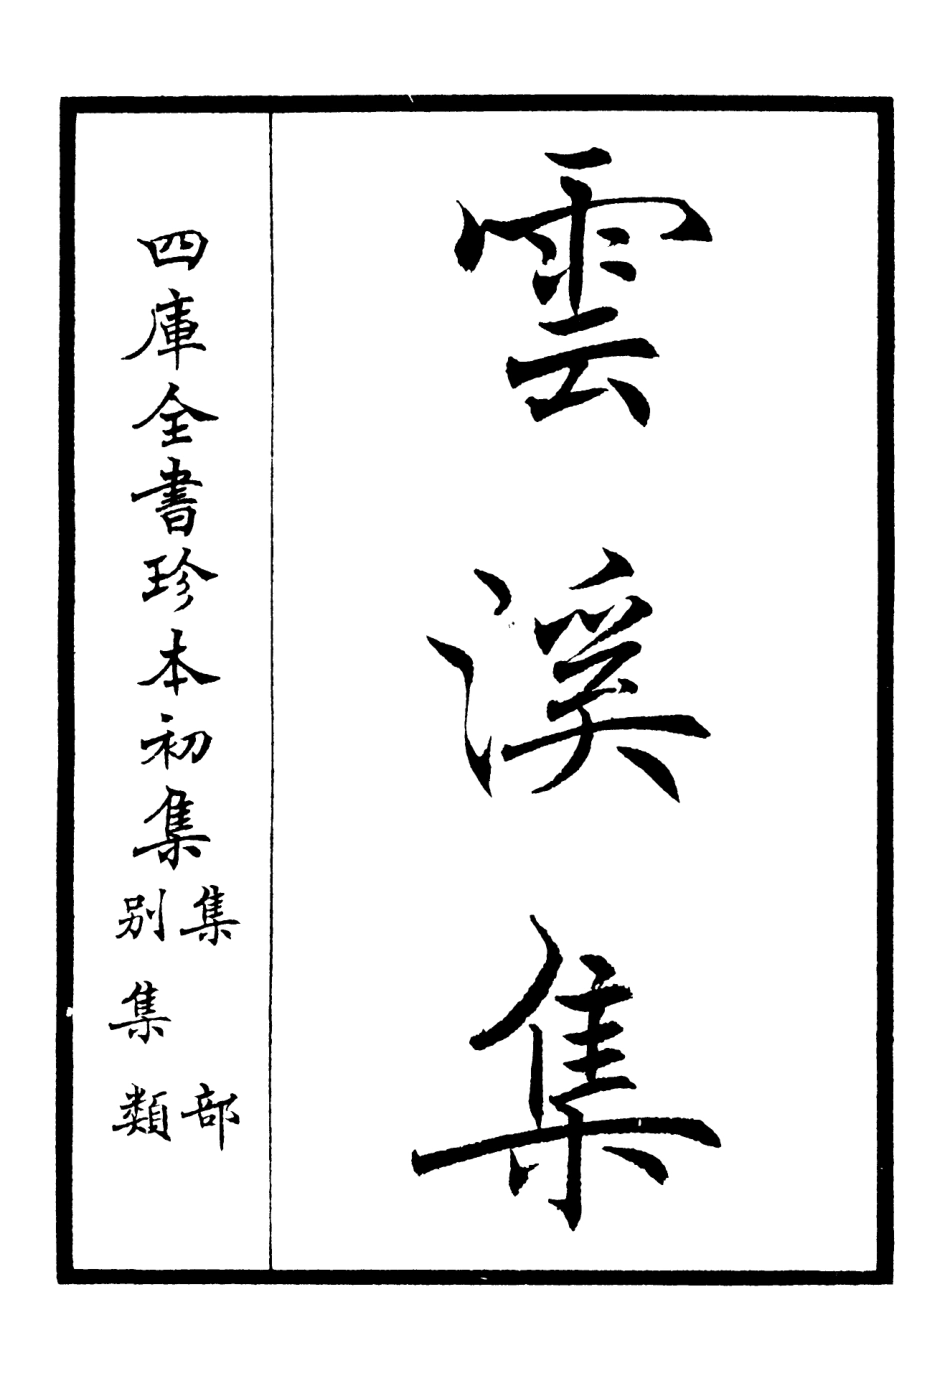 雲溪集
四庫全書珍本初集
集部
別集類